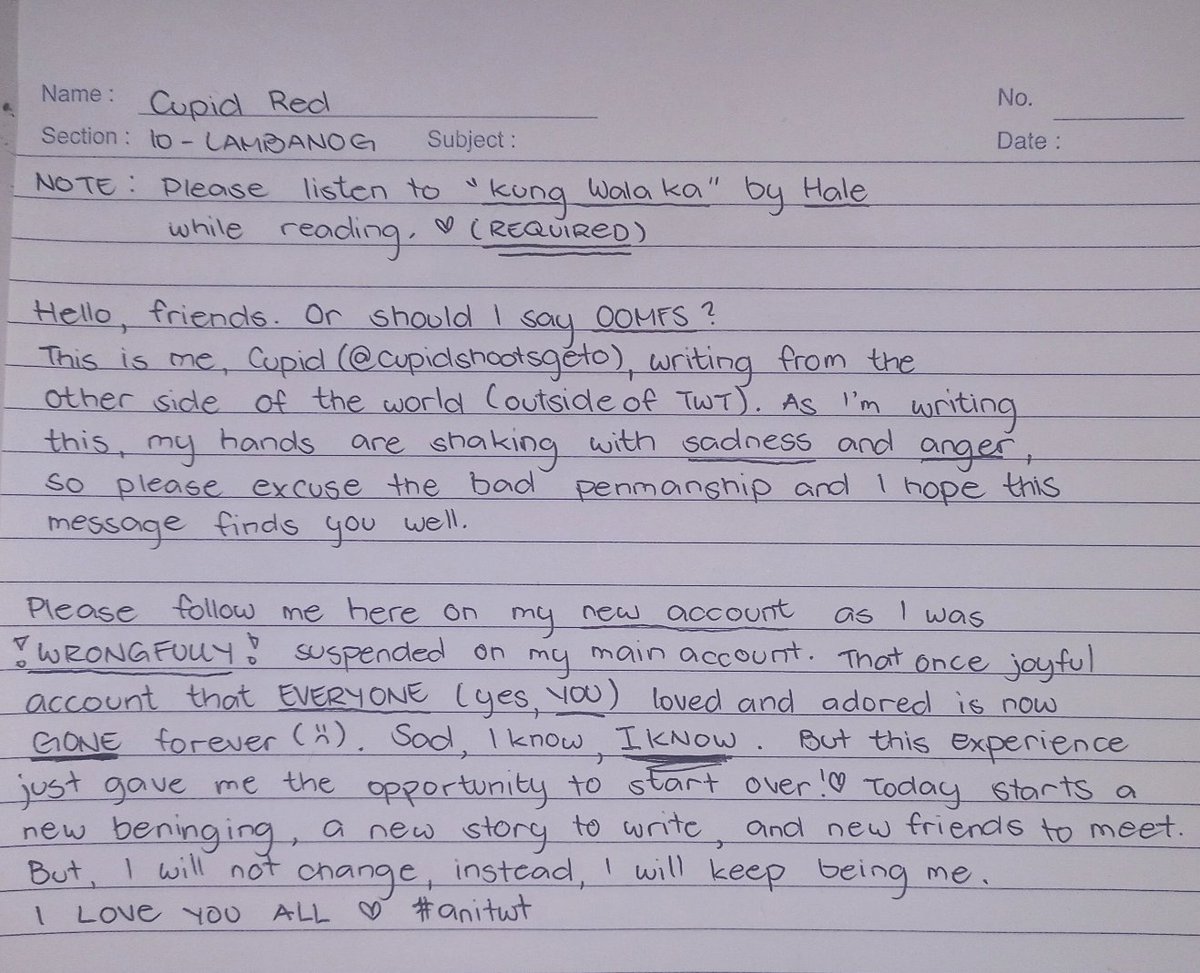 Name: Cupid Red No.
Section: 10 - LAMBANOG Subject: Date:
NOTE: Please listen to "Kung Wala ka" by Hale
while reading. ♡ (REQUIRED)
Hello, friends. Or should I say OOMFS?
This is me, Cupid (@cupidshootsgeto), writing from the
other side of the world (outside of TWT). As I'm writing
this, my hands are shaking with sadness and anger,
so please excuse the bad penmanship and I hope this
message finds you well.
Please follow me here on my new account as I was
!WRONGFULLY! suspended on my main account. That once joyful
account that EVERYONE (yes, YOU) loved and adored is now
GONE forever (:(). Sad, I know, I KNOW. But this experience
just gave me the opportunity to start over!♡ Today starts a
new beninging, a new story to write, and new friends to meet.
But, I will not change, instead, I will keep being me.
I LOVE YOU ALL ♡ #anitwt